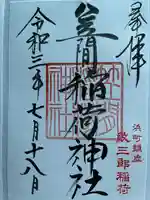 奉拝
笠間稲荷神社
浜町鎮座
敬三郎稲荷
令和三年七月十八日